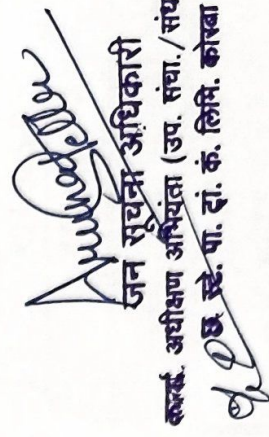 जन सूचना अधिकारी
कार्या. अधीक्षण अभियंता (उप. संधा./संधा
छ. स्टे. पा. ट्रां. कं. लिमि. कोरबा